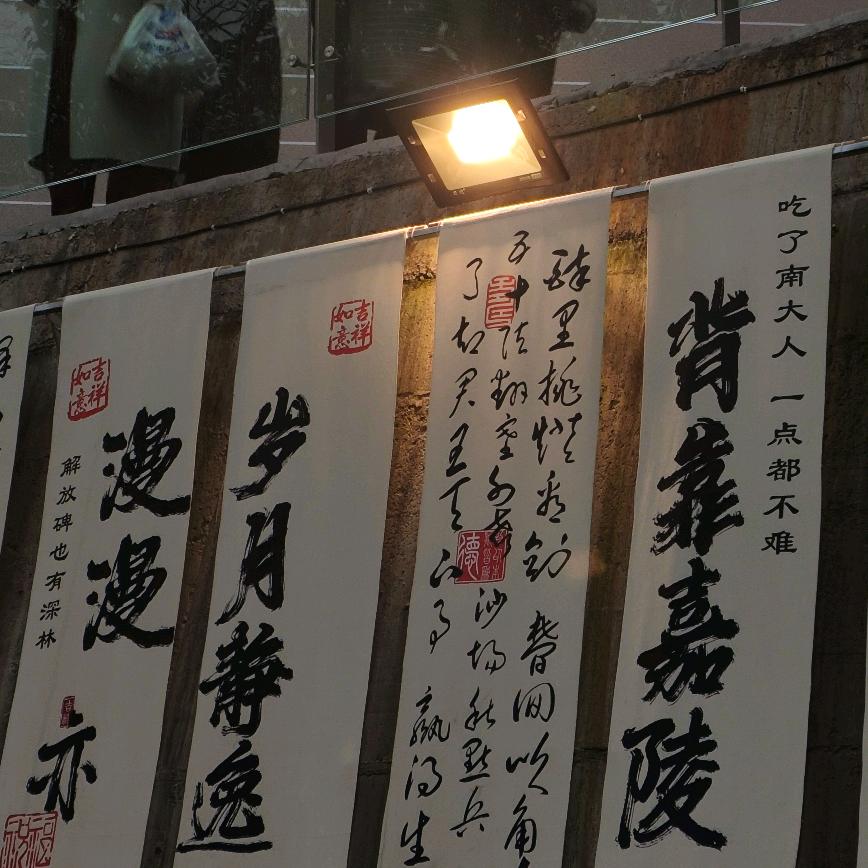 吃了南大人 一点都不难
背靠嘉陵
醉里挑燈看劍 夢回吹角
五十弦翻塞外声 沙场秋點兵
了却君王天下事 赢得生
德
吉祥如意
岁月静逸
吉祥如意
漫漫 亦
解放碑也有深林